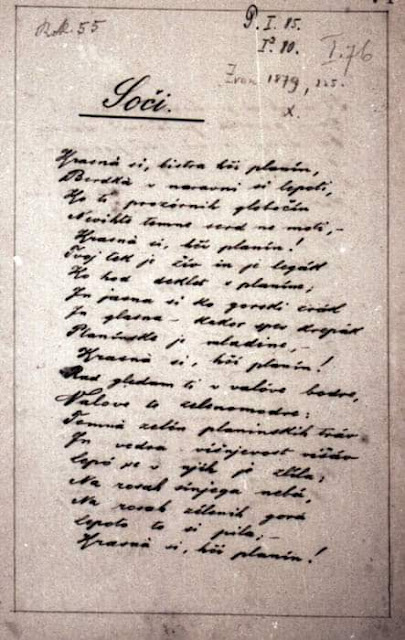 Rok. 55
P. I. 85.
Iº 80.
I.76
Zvon 1879, 225.
x.
Soči.
Krasná si, bistra hči planín,
Berdká v naravni si lepoti,
Ko ti prozórnih globočín
Nevihte temne serd ne moti, –
Krasná si, hči planín!
Tvoj tek je živ in je legák
Ko hod deklet s planíne;
In jasna si ko gorski zrák
In glasna – kakor spev krepák
Planinske je mladine, –
Krasná si, hči planin!
Rad gledam ti v valóve bodre,
Valove te zelenomodre:
Temna zelén planinskih tráv
In vedra višnjevost višáv
Lepó se v njih je zlila;
Na rosah sinjega nebá,
Na rosah zelenih gorá
Lepoto to si pila, –
Krasná si, hči planin!